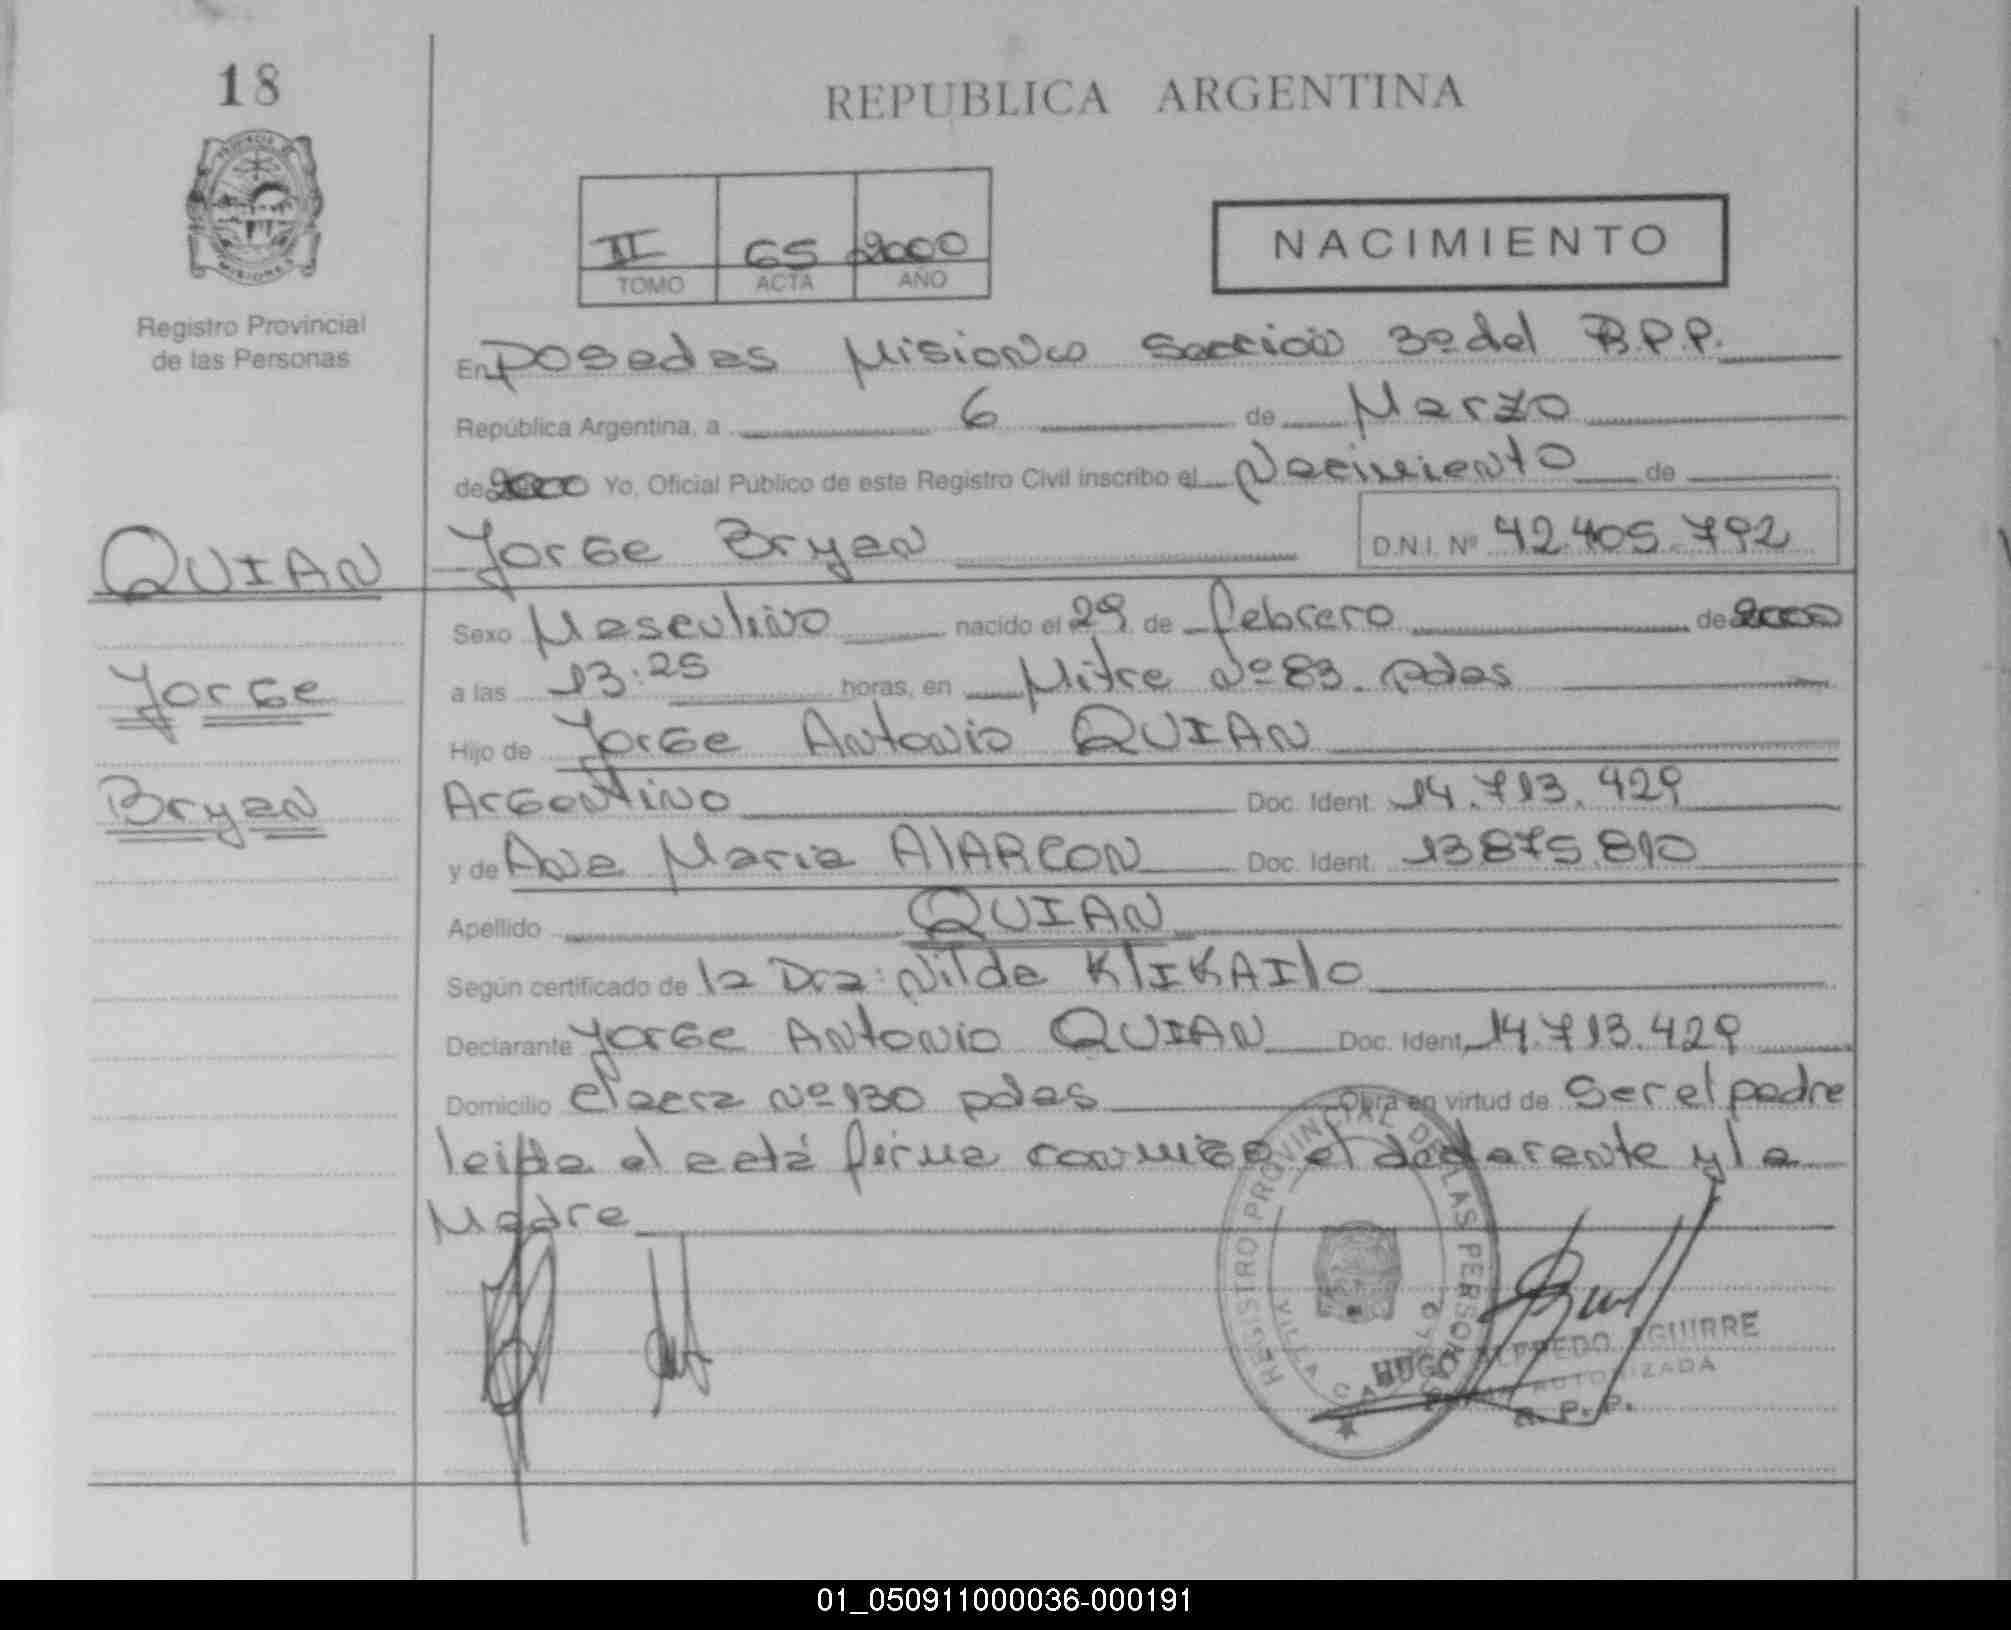 18
REPUBLICA ARGENTINA
PROVINCIA DE
MISIONES
Registro Provincial
de las Personas
II GS 2000
TOMO ACTA AÑO
NACIMIENTO
En Posedas Misiones Seccion 3º del R.P.P.
República Argentina, a 6 de Marzo
de 2000 Yo, Oficial Público de este Registro Civil inscribo el Nacimiento de
QUIAN Jorge Bryan D.N.I. Nº 42.405.792
Sexo Masculino nacido el 29 de febrero de 2000
Jorge
a las 13:25 horas, en Mitre Nº 83. pdas
Hijo de Jorge Antonio QUIAN
Bryan
Argentino Doc. Ident. 14.713.429
y de Ana Maria AlARCON Doc. Ident. 13875.810
Apellido QUIAN
Según certificado de la Dra: Nilda KlIKAIlo
Declarante Jorge Antonio QUIAN Doc. Ident. 14.713.429
Domicilio Nº 130 pdas Obra en virtud de Ser el padre
leida el acta firma conmigo el declarante y la
Madre
REGISTRO PROVINCIAL DE LAS PERSONAS
VILLA
HUGO ALFREDO AGUIRRE
AUTORIZADA
R. P. P.
01_050911000036-000191